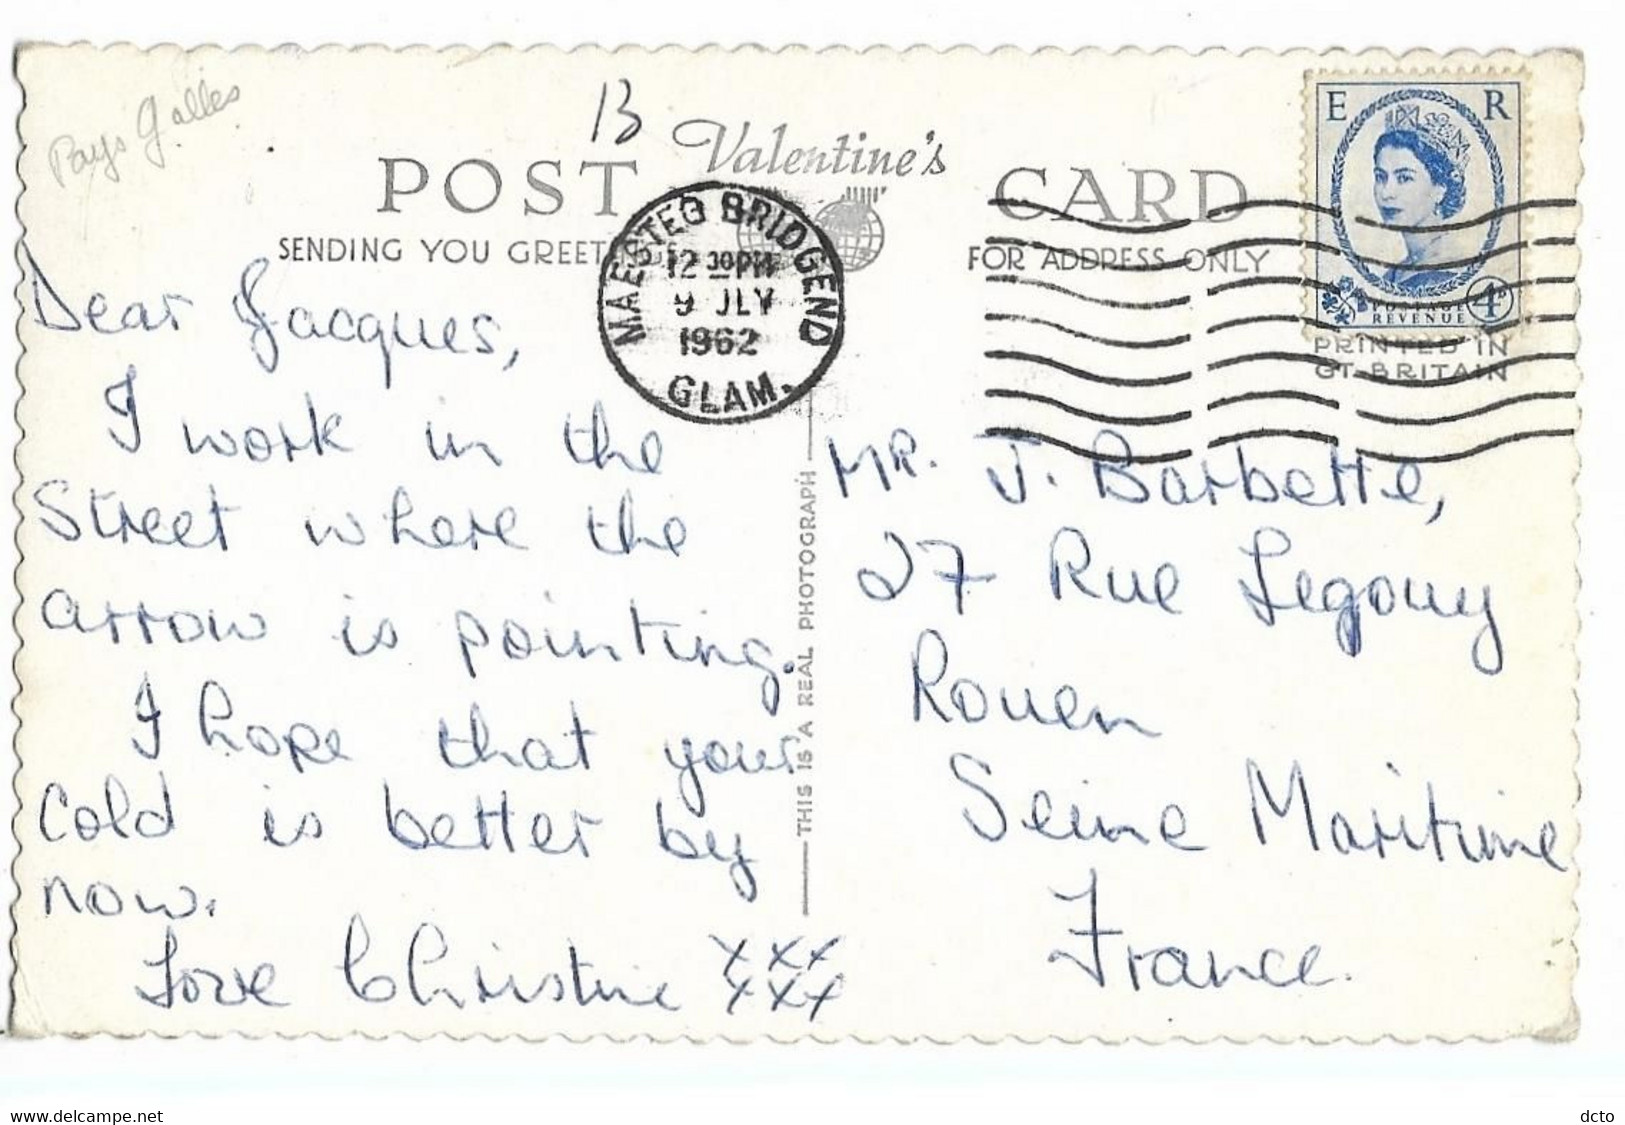 Pays Galles
13
Valentine's
POST CARD
SENDING YOU GREET
FOR ADDRESS ONLY
MAESTEG BRIDGEND
12 30PM
9 JLY
1962
GLAM.
E R
POSTAGE
REVENUE
4D
PRINTED IN
GT. BRITAIN
Dear Jacques,
I work in the
Street where the
arrow is pointing.
I hope that your
cold is better by
now.
Love Christine xxx
xxx
THIS IS A REAL PHOTOGRAPH
MR. J. Barbette,
27 Rue Legouy
Rouen
Seine Maritime
France.
www.delcampe.net
dcto